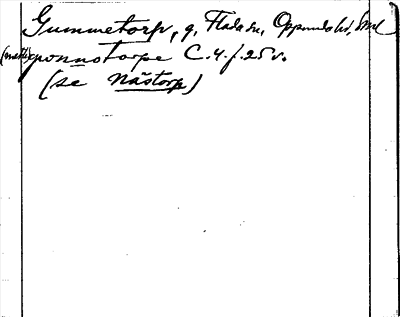 Gummetorp, g, Flada sn, Oppunda hd, Sml
gonnustorpe C.4.f.25 v.
(se Nästorp)